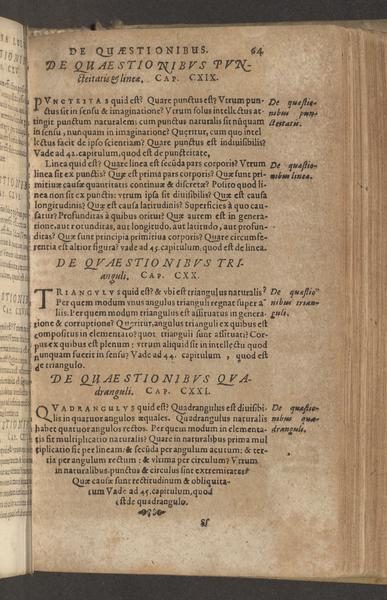 DE QUÆSTIONIBUS. 64
DE QVAESTIONIBVS PVN-
cteitatis & lineæ. CAP. CXIX.
PVNCTEITAS quid est? Quare punctus est? Vtrum pun-
ctus sit in sensu & imaginatione? Vtrum solus intellectus at-
tingit punctum naturalem: cum punctus naturalis sit nūquam
in sensu, nunquam in imaginatione? Quęritur, cum quo intel
lectus facit de ipso scientiam? Quare punctus est indiuisibilis?
Vade ad 42. capitulum, quod est de puncteitate.
De quæstio-
nibus pun-
cteitatis.
Linea quid est? Quare linea est secūda pars corporis? Vtrum
linea sit ex punctis? Quæ est prima pars corporis? Quæ sunt pri-
mitiuæ causæ quantitatis continuæ & discretæ? Posito quod li-
nea non sit ex punctis: vtrum ipsa sit diuisibilis? Quæ est causa
longitudinis? Quæ est causa latitudinis? Superficies à quo cau-
satur? Profunditas à quibus oritur? Quæ autem est in genera-
tione, aut rotunditas, aut longitudo, aut latitudo, aut profun-
ditas? Quæ sunt principia primitiua corporis? Quare circumfe-
rentia est altior figura? vade ad 45. capitulum, quod est de linea.
De quæstio-
nibus lineæ.
DE QVAESTIONIBVS TRI-
anguli. CAP. CXX.
TRIANGVLVS quid est? & vbi est triangulus naturalis?
Per quem modum vnus angulus trianguli regnat super a-
lios. Per quem modum triangulus est assituatus in genera-
tione & corruptione? Quęritur, angulus trianguli ex quibus est
compositus in elementato? quot trianguli sunt assituati? Cor-
pus ex quibus est plenum: vtrum aliquid sit in intellectu quod
nunquam fuerit in sensu? Vade ad 44. capitulum, quod est
de triangulo.
De quæstio-
nibus trian-
guli.
DE QVAESTIONIBVS QVA-
dranguli. CAP. CXXI.
QVADRANGVLVS quid est? Quadrangulus est diuisibi-
lis in quatuor angulos æquales. Quadrangulus naturalis
habet quatuor angulos rectos. Per quem modum in elementa-
tis sit multiplicatio naturalis? Quare in naturalibus prima mul
tiplicatio sit per lineam: & secūda per angulum acutum: & ter-
tia per angulum rectum: & vltima per circulum? Vtrum
in naturalibus punctus & circulus sint extremitates?
Quæ causæ sunt rectitudinum & obliquita-
tum Vade ad 45. capitulum, quod
est de quadrangulo.
De quæstio-
nibus qua-
dranguli.